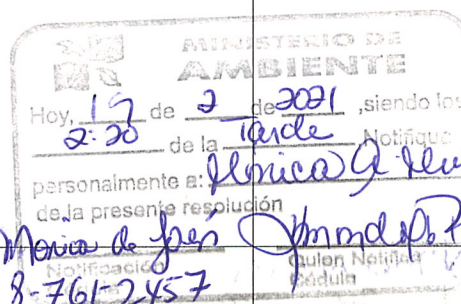 MINISTERIO DE
AMBIENTE
Hoy, 19 de 2 de 2021, siendo los
2:20 de la Tarde Notifique
personalmente a: Monica A.
de la presente resolución
Monica de
Notificación Quien Notifica
8-761-2457 Cédula